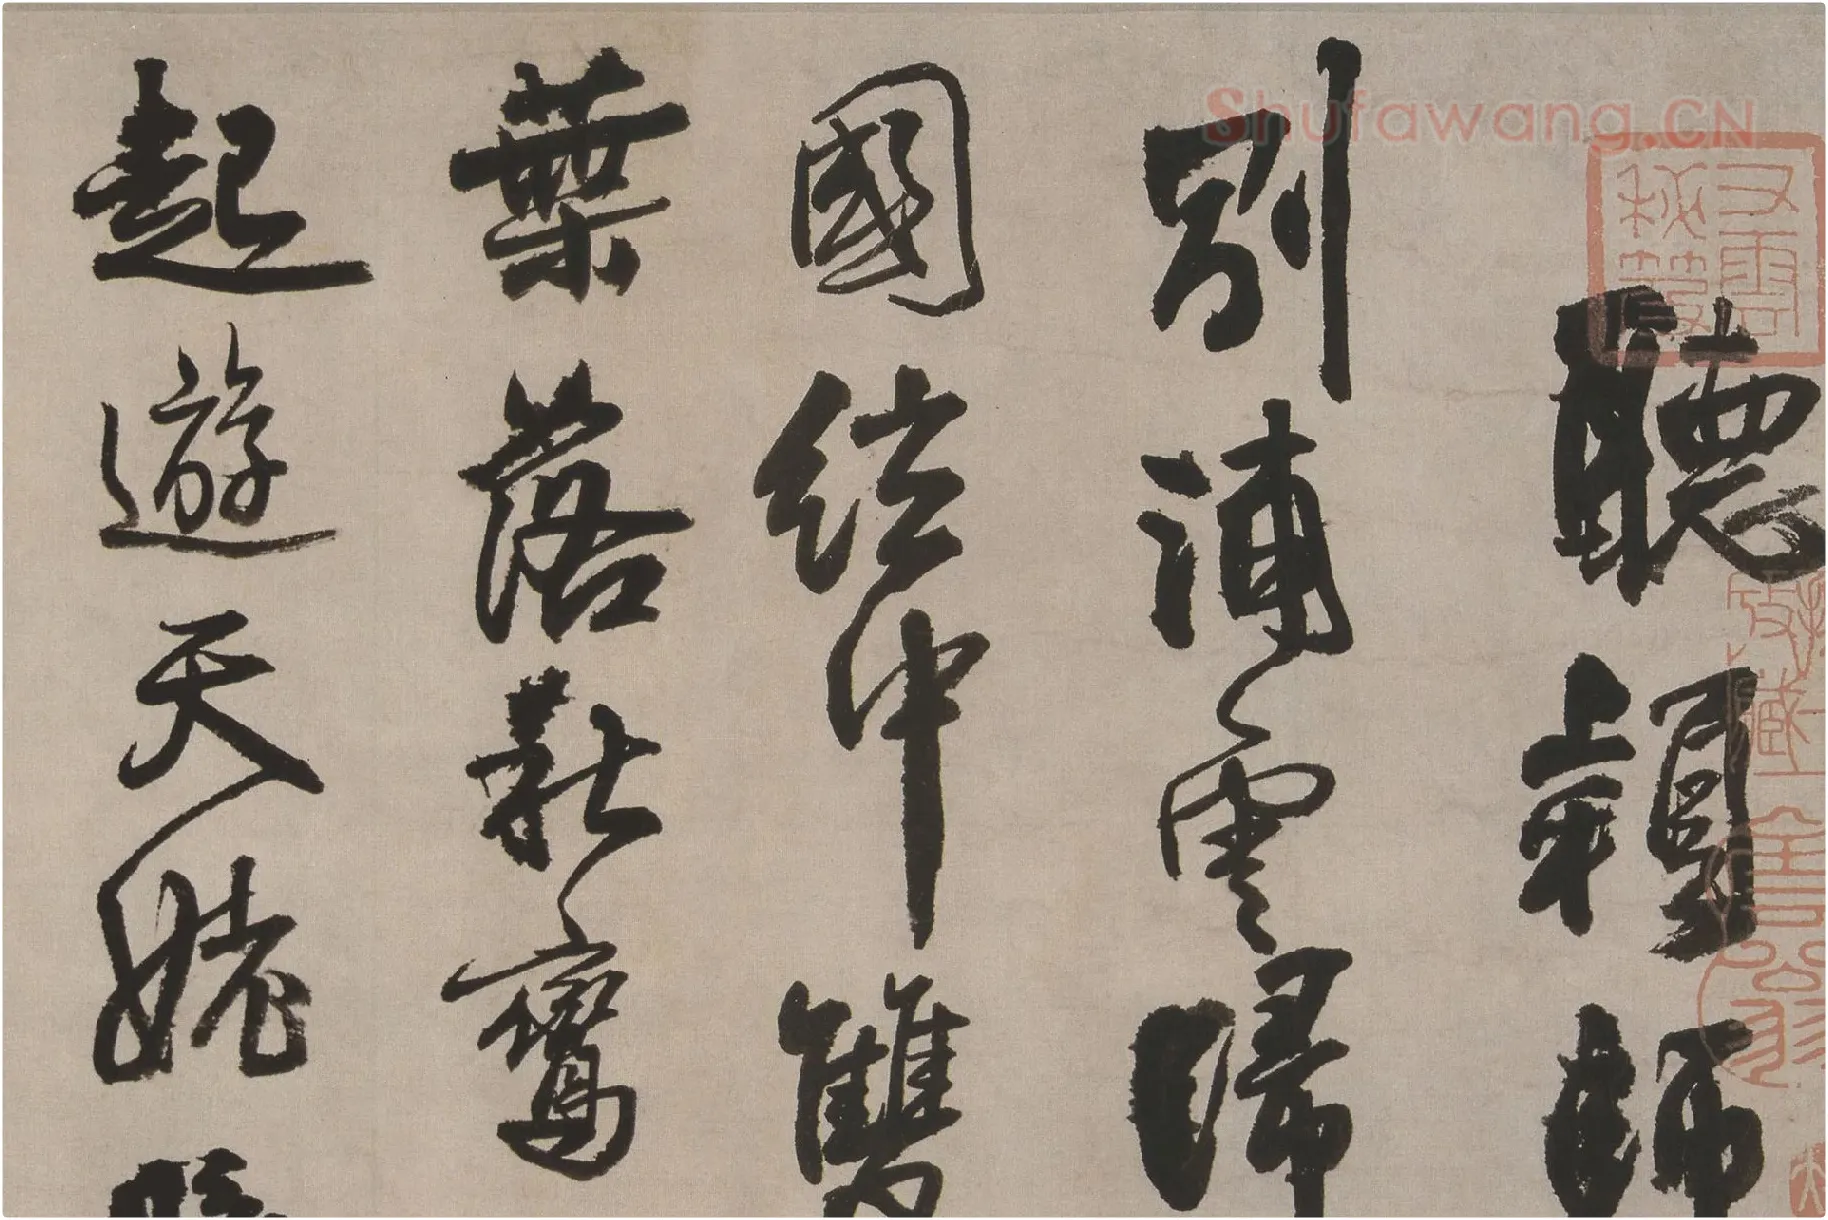 Shufawang.CN
聽穎師
別浦雲歸
國絃中雙
葉落秋鸞
起遊天姥